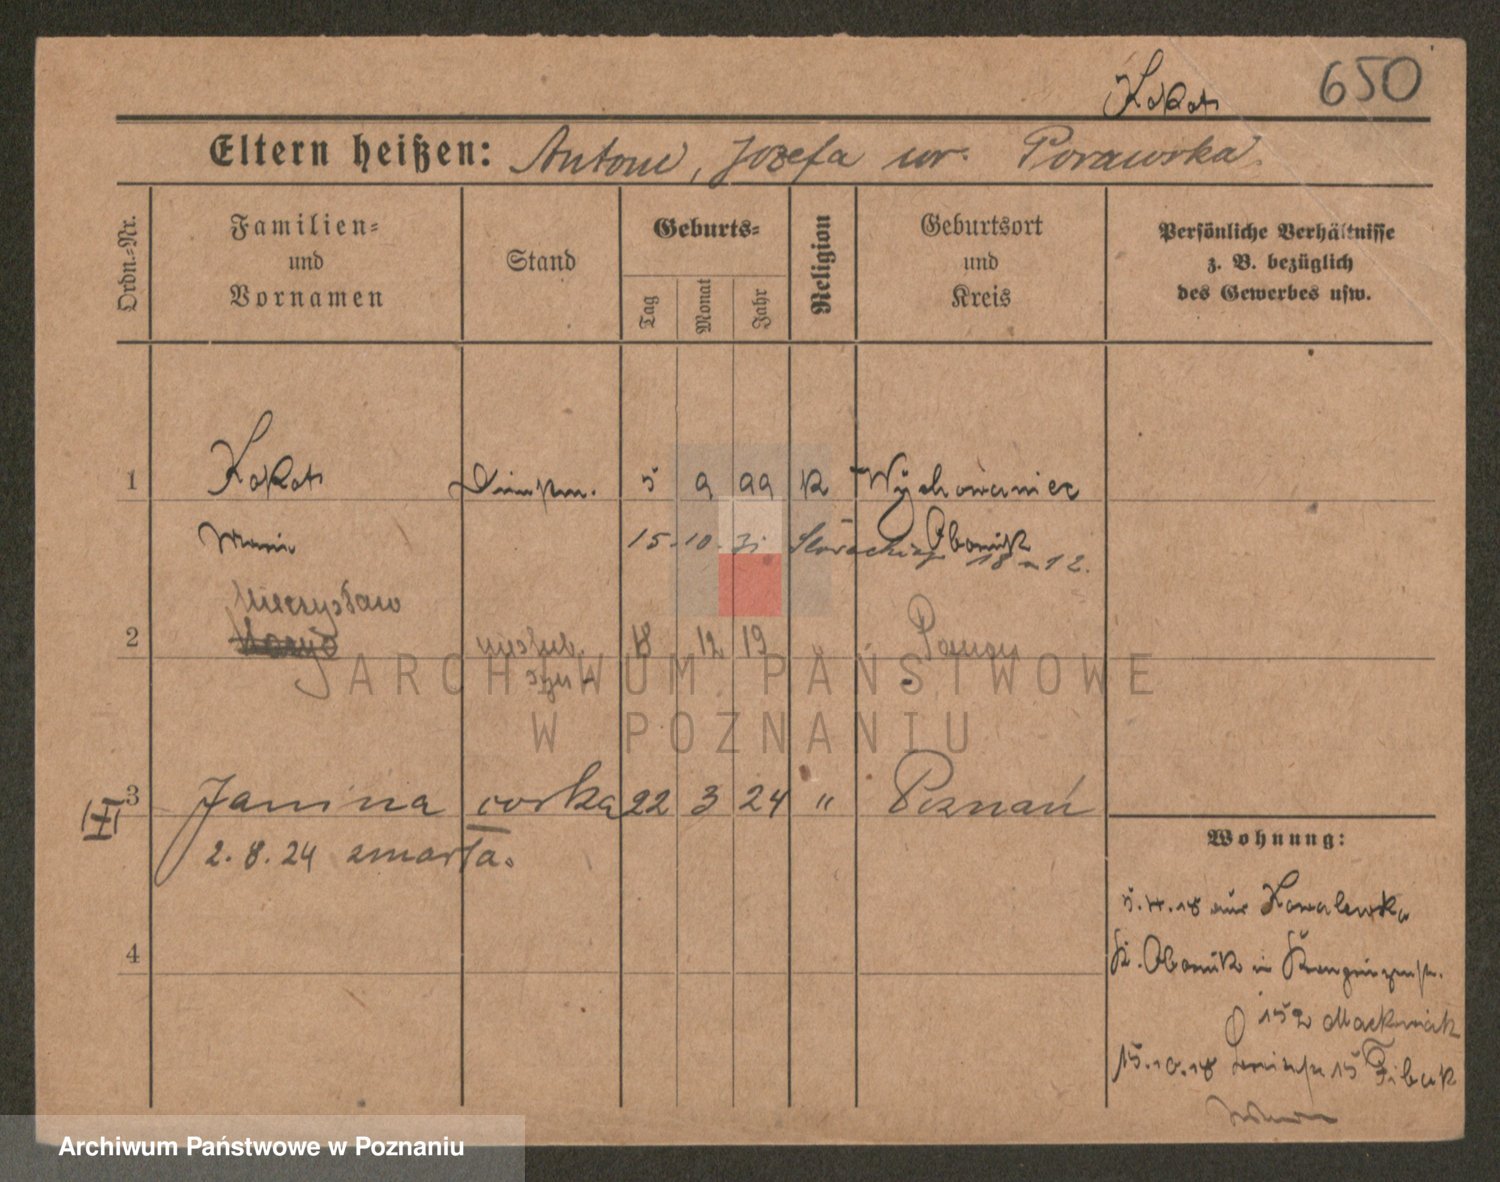 Kokot
650
Eltern heißen: Antoni, Jozefa ur. Porawska
Ordn.-Nr.
Familien-
und
Vornamen
Stand
Geburts-
Tag
Monat
Jahr
Religion
Geburtsort
und
Kreis
Persönliche Verhältnisse
z. B. bezüglich
des Gewerbes usw.
1 Kokot 5 9 99 K Wychowaniec
Marie 15. 10. Obornik 18 12.
Mieczysław
2 nieślub. 18 12 19 Poznań
syn
3 Janina córka 22 3 24 " Poznań
2.8.24 zmarła.
4
Wohnung:
5.4.18 aus Kowalewko
Kr. Obornik in
152 Maćkowiak
15.10.18 15 Fibak
ARCHIWUM PAŃSTWOWE
W POZNANIU
Archiwum Państwowe w Poznaniu